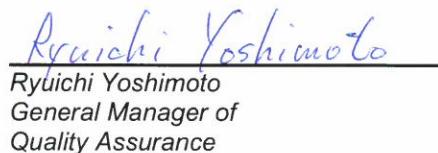 Ryuichi Yoshimoto
Ryuichi Yoshimoto
General Manager of
Quality Assurance